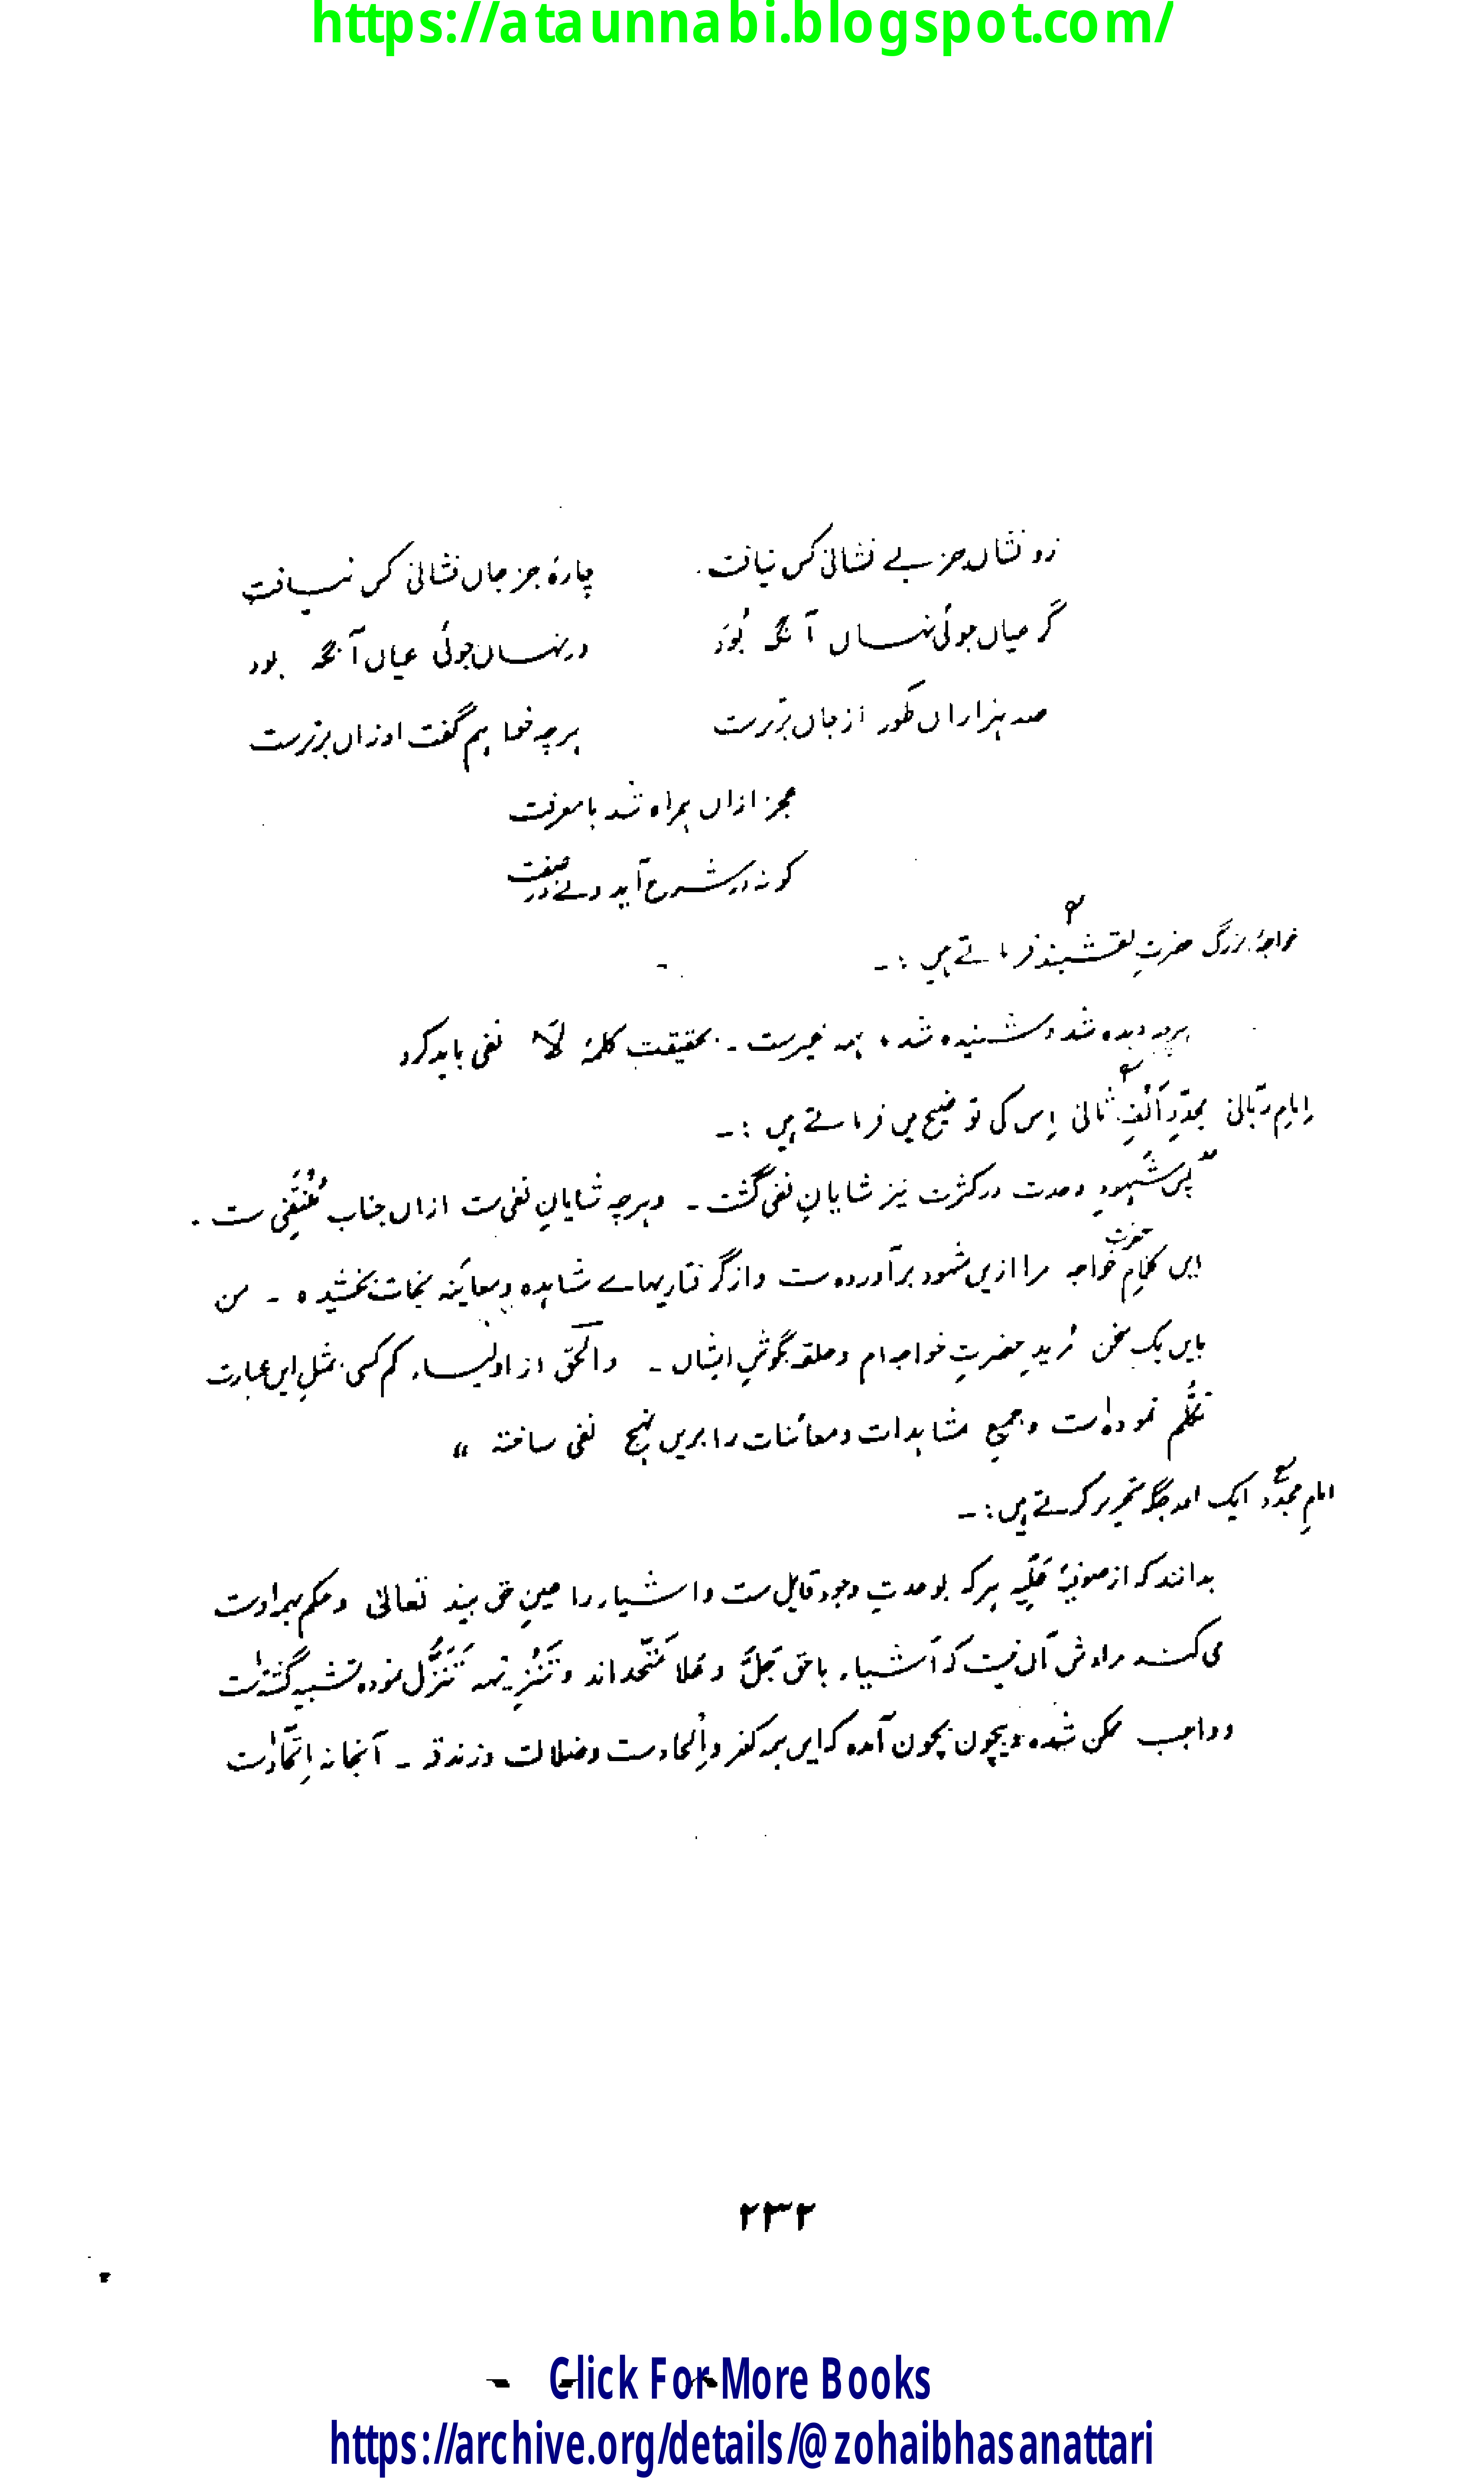 https://ataunnabi.blogspot.com/
زو نشاں جز بے نشانی کس نیافت چارۂ جز جاں نشانی کس نیافت
گر عیاں جوئی نہاں آنگہ بُوَد ور نہاں جوئی عیاں آنگہ بود
صد ہزاراں طَور از جاں برترست ہرچہ خواہم گفت او زاں برترست
عجز ازاں ہمراہ شد با معرفت
کو نہ در شرح آید و نے در صفت
خواجۂ بزرگ حضرتِ نقشبندؒ فرماتے ہیں :۔
ہرچہ دیدہ شد و شنیدہ شد، ہمہ غیرست ۔ بحقیقتِ کلمۂ لَا نفی باید کرد
اِمامِ ربّانی مجدّدِ اَلفِ ثانیؒ اِس کی توضیح میں فرماتے ہیں :۔
"پس شُہودِ وحدت در کثرت نیز شایانِ نفی گشت ۔ و ہرچہ شایانِ نفی ست ازاں جناب مُنْتَفِی ست ۔
ایں کلامِ حضرت خواجہ مرا ازیں شہود برآوردہ ست و از گرفتاریہاے مشاہدہ و معاینہ نجات بخشیدہ ۔ من
بایں یک سخن مُریدِ حضرتِ خواجہ ام و حلقہ بگوشِ ایشاں ۔ والحقّ از اولیاء کم کسی بمثلِ ایں عبارت
تکلُّم نمودہ است و جمیع مشاہدات و معائنات را بریں نہج نفی ساختہ "
امامِ مجدّدؒ ایک اور جگہ تحریر کرتے ہیں :۔
بدانند کہ از صوفیۂ عَلِیّہ ہر کہ بوحدتِ وجود قایل ست و اشیاء را عینِ حق بیند تعالیٰ و حکم بہمہ اوست
می کنند مرادش آں نیست کہ اَشیاء با حق جَلَّ و عَلا مُتَّحد اند و تَنزِیہہ تَنَزُّل نمودہ تشبیہ گشتہ است
و واجب ممکن شدہ و بیچون بچون آمدہ کہ ایں ہمہ کفر و اِلحاد ست و ضلالت و زندقہ ۔ آنجا نہ اِتّحاد است
۲۳۲
Click For More Books
https://archive.org/details/@zohaibhasanattari